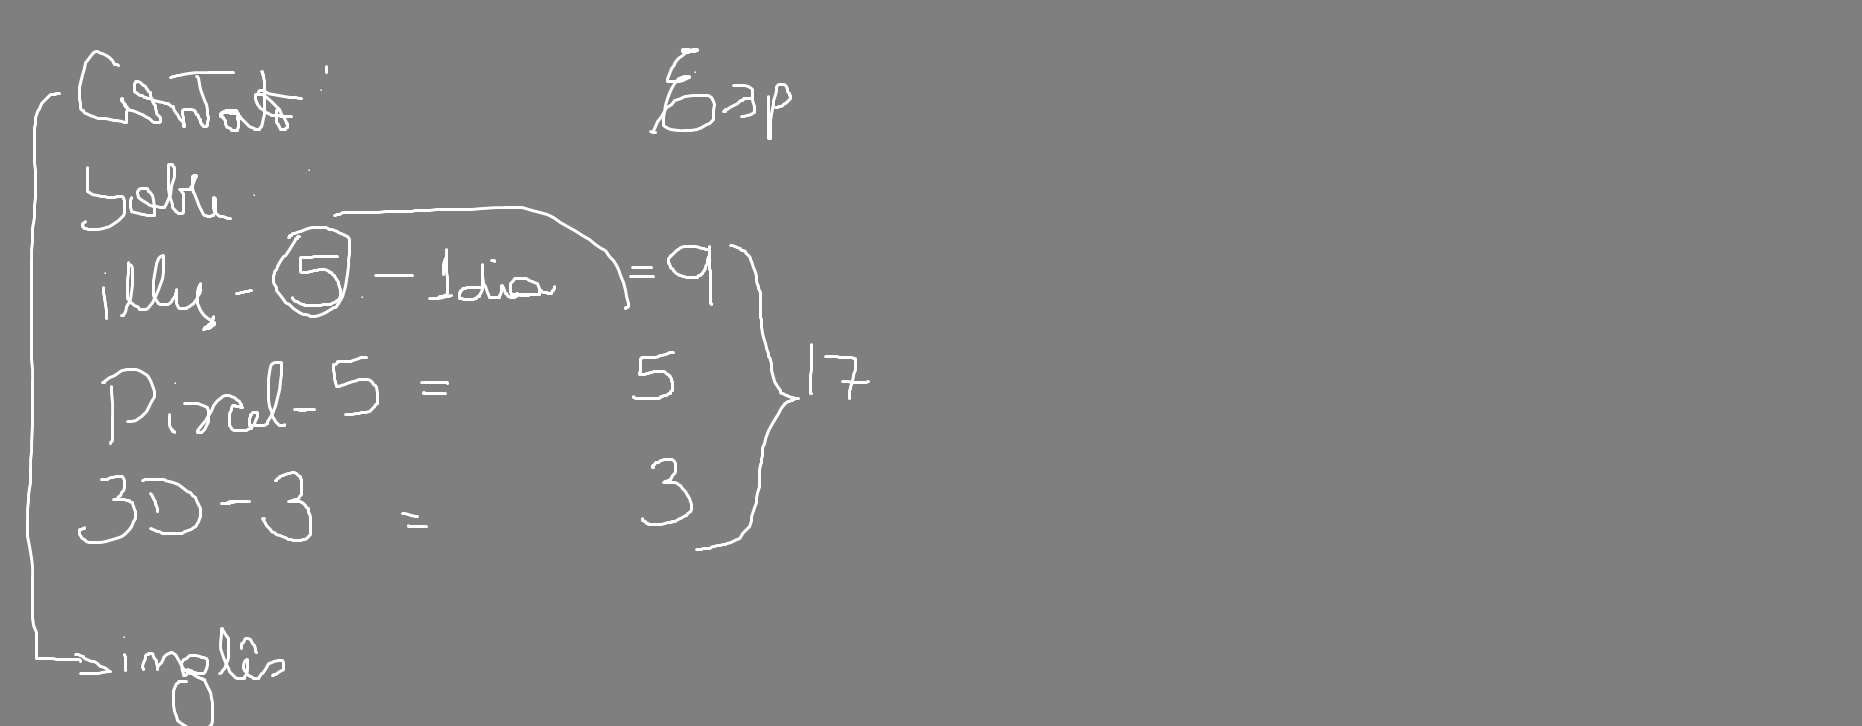 Contato Exp
Sobre
illus - 5 - 1 dia = 9
Pixel - 5 = 5
17
3D - 3 = 3
inglês